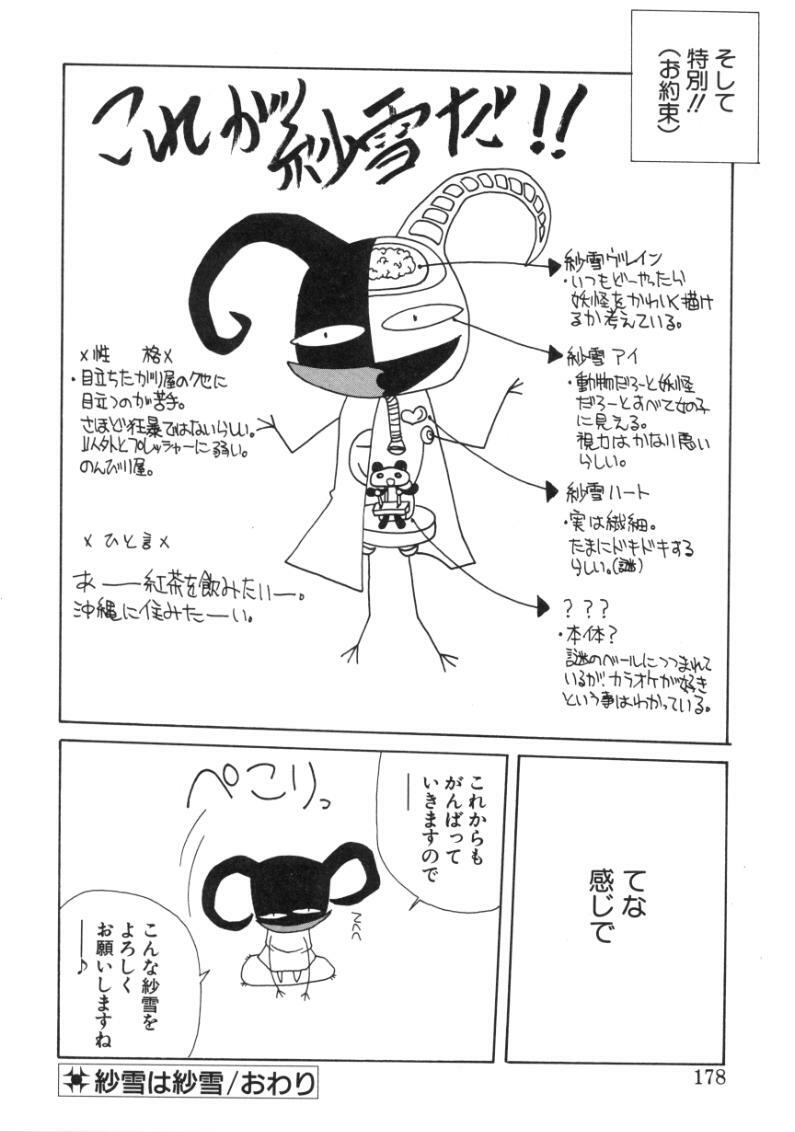 そして
特別!!
(お約束)
これが紗雪だ!!
紗雪ヴレイン
・いつもどーやったら
妖怪をかわいく描け
るか考えている。
紗雪アイ
・動物だろーと妖怪
だろーとすべて女の子
に見える。
視力はかなり悪い
らしい。
紗雪ハート
・実は繊細。
たまにドキドキする
らしい。(謎)
???
・本体?
謎のベールにつつまれて
いるが、カラオケが好き
という事はわかっている。
×性 格×
・目立ちたがり屋のクセに
目立つのが苦手。
さほど狂暴ではないらしい。
以外とプレッチャーに弱い。
のんびり屋。
×ひと言×
あ——紅茶を飲みたいー。
沖縄に住みたーい。
てな
感じで
これからも
がんばって
いきますので
——
ぺこりっ
こんな紗雪を
よろしく
お願いしますね
——♪
紗雪は紗雪/おわり
178